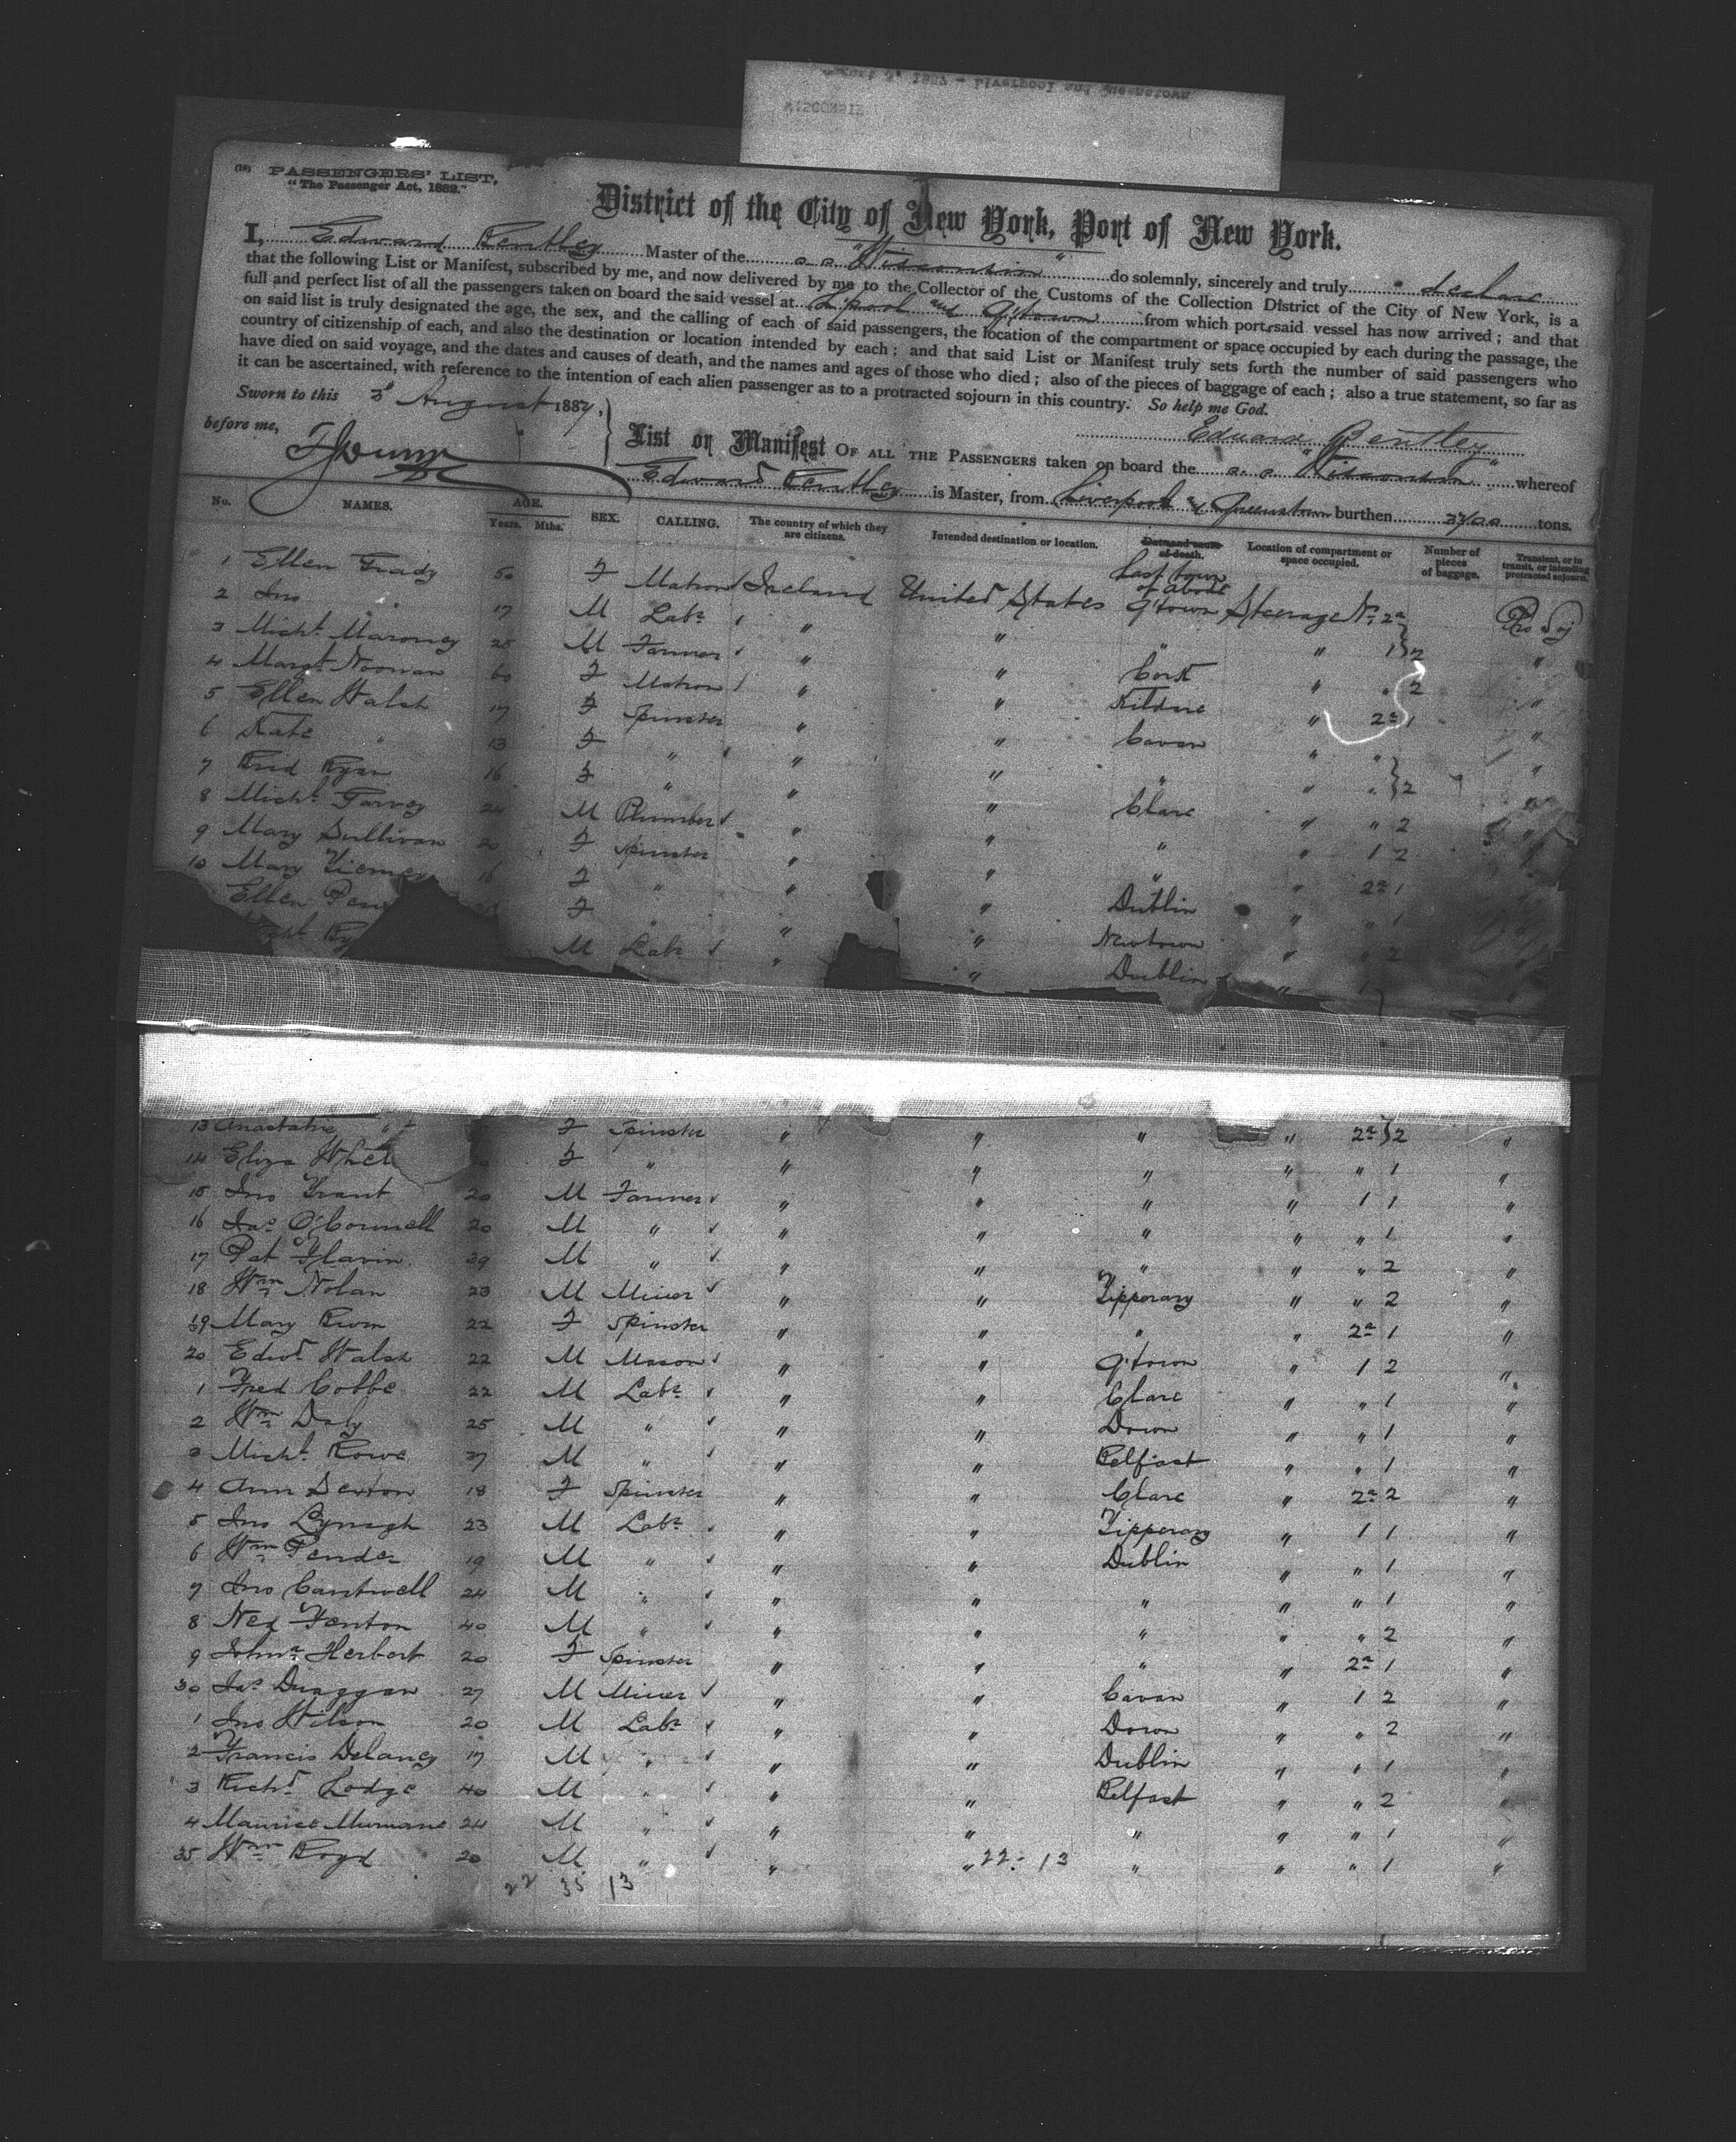 (10) PASSENGERS' LIST.
"The Passenger Act, 1882."
District of the City of New York, Port of New York.
I, Edward Bentley Master of the s.s. "Wisconsin" do solemnly, sincerely and truly declare
that the following List or Manifest, subscribed by me, and now delivered by me to the Collector of the Customs of the Collection District of the City of New York, is a
full and perfect list of all the passengers taken on board the said vessel at L'pool and Q'town from which port said vessel has now arrived; and that
on said list is truly designated the age, the sex, and the calling of each of said passengers, the location of the compartment or space occupied by each during the passage, the
country of citizenship of each, and also the destination or location intended by each; and that said List or Manifest truly sets forth the number of said passengers who
have died on said voyage, and the dates and causes of death, and the names and ages of those who died; also of the pieces of baggage of each; also a true statement, so far as
it can be ascertained, with reference to the intention of each alien passenger as to a protracted sojourn in this country. So help me God.
Sworn to this 3d August 1887,
Edward Bentley
before me,
List or Manifest OF ALL THE PASSENGERS taken on board the s.s. "Wisconsin" whereof
Edward Bentley is Master, from Liverpool & Queenstown burthen 3700 tons.
No. NAMES. AGE. Years. Mths. SEX. CALLING. The country of which they are citizens. Intended destination or location. Date and cause of death. Last town of abode Location of compartment or space occupied. Number of pieces of baggage. Transient, or in transit, or intending protracted sojourn.
1 Ellen Grady 50 F Matron Ireland United States Q'town Steerage No. 2a Pro Soj
2 Jno " 17 M Labr " " " " 1 } 2 "
3 Michl. Maroney 25 M Farmer " " Cork " " 2 "
4 Margt. Noonan 60 F Matron " " Kildare " 2a 1 "
5 Ellen Walsh 17 F Spinster " " Cavan " " "
6 Kate " 13 F " " " " " " } 2 "
7 Brid Ryan 16 F " " " Clare " " 2 "
8 Michl. Garvey 24 M Plumber " " " " 1 2 "
9 Mary Sullivan 20 F Spinster " " " " 2a 1 "
10 Mary Tierney 16 F " " " Dublin " " 1 "
Ellen F " " " Newtown " " 2 "
M Labr " " Dublin " 1 "
13 Anastatia " F Spinster " " " " 2a } 2 "
14 Eliza F " " " " " " 1 "
15 Jno Grant 20 M Farmer " " " " 1 1 "
16 Jas. O'Connell 20 M " " " " " " 1 "
17 Pat Flavin 39 M " " " " " " 2 "
18 Wm Nolan 23 M Miner " " Tipperary " " 2 "
19 Mary 22 F Spinster " " " " 2a 1 "
20 Edwd Walsh 22 M Mason " " Q'town " 1 2 "
1 Fred Cobbe 22 M Labr " " Clare " " 1 "
2 Wm Daly 25 M " " " Down " " 1 "
3 Michl. Rowe 37 M " " " Belfast " " 1 "
4 Ann Sexton 18 F Spinster " " Clare " 2a 2 "
5 Jno Lynagh 23 M Labr " " Tipperary " 1 1 "
6 Wm Pender 19 M " " " Dublin " " 1 "
7 Jno Cantwell 24 M " " " " " " 1 "
8 Ned Fenton 40 M " " " " " " 2 "
9 Johna Herbert 20 F Spinster " " " " 2a 1 "
30 Jas. Duaggan 27 M Miner " " Cavan " 1 2 "
1 Jno Wilson 20 M Labr " " Down " " 2 "
2 Francis Delaney 17 M " " " Dublin " " 1 "
3 Richd. Lodge 40 M " " " Belfast " " 2 "
4 Maurice Murnane 24 M " " " " " " 1 "
35 Wm Boyd 20 M " " " 22 - 13 " " " 1 "
22 35 13